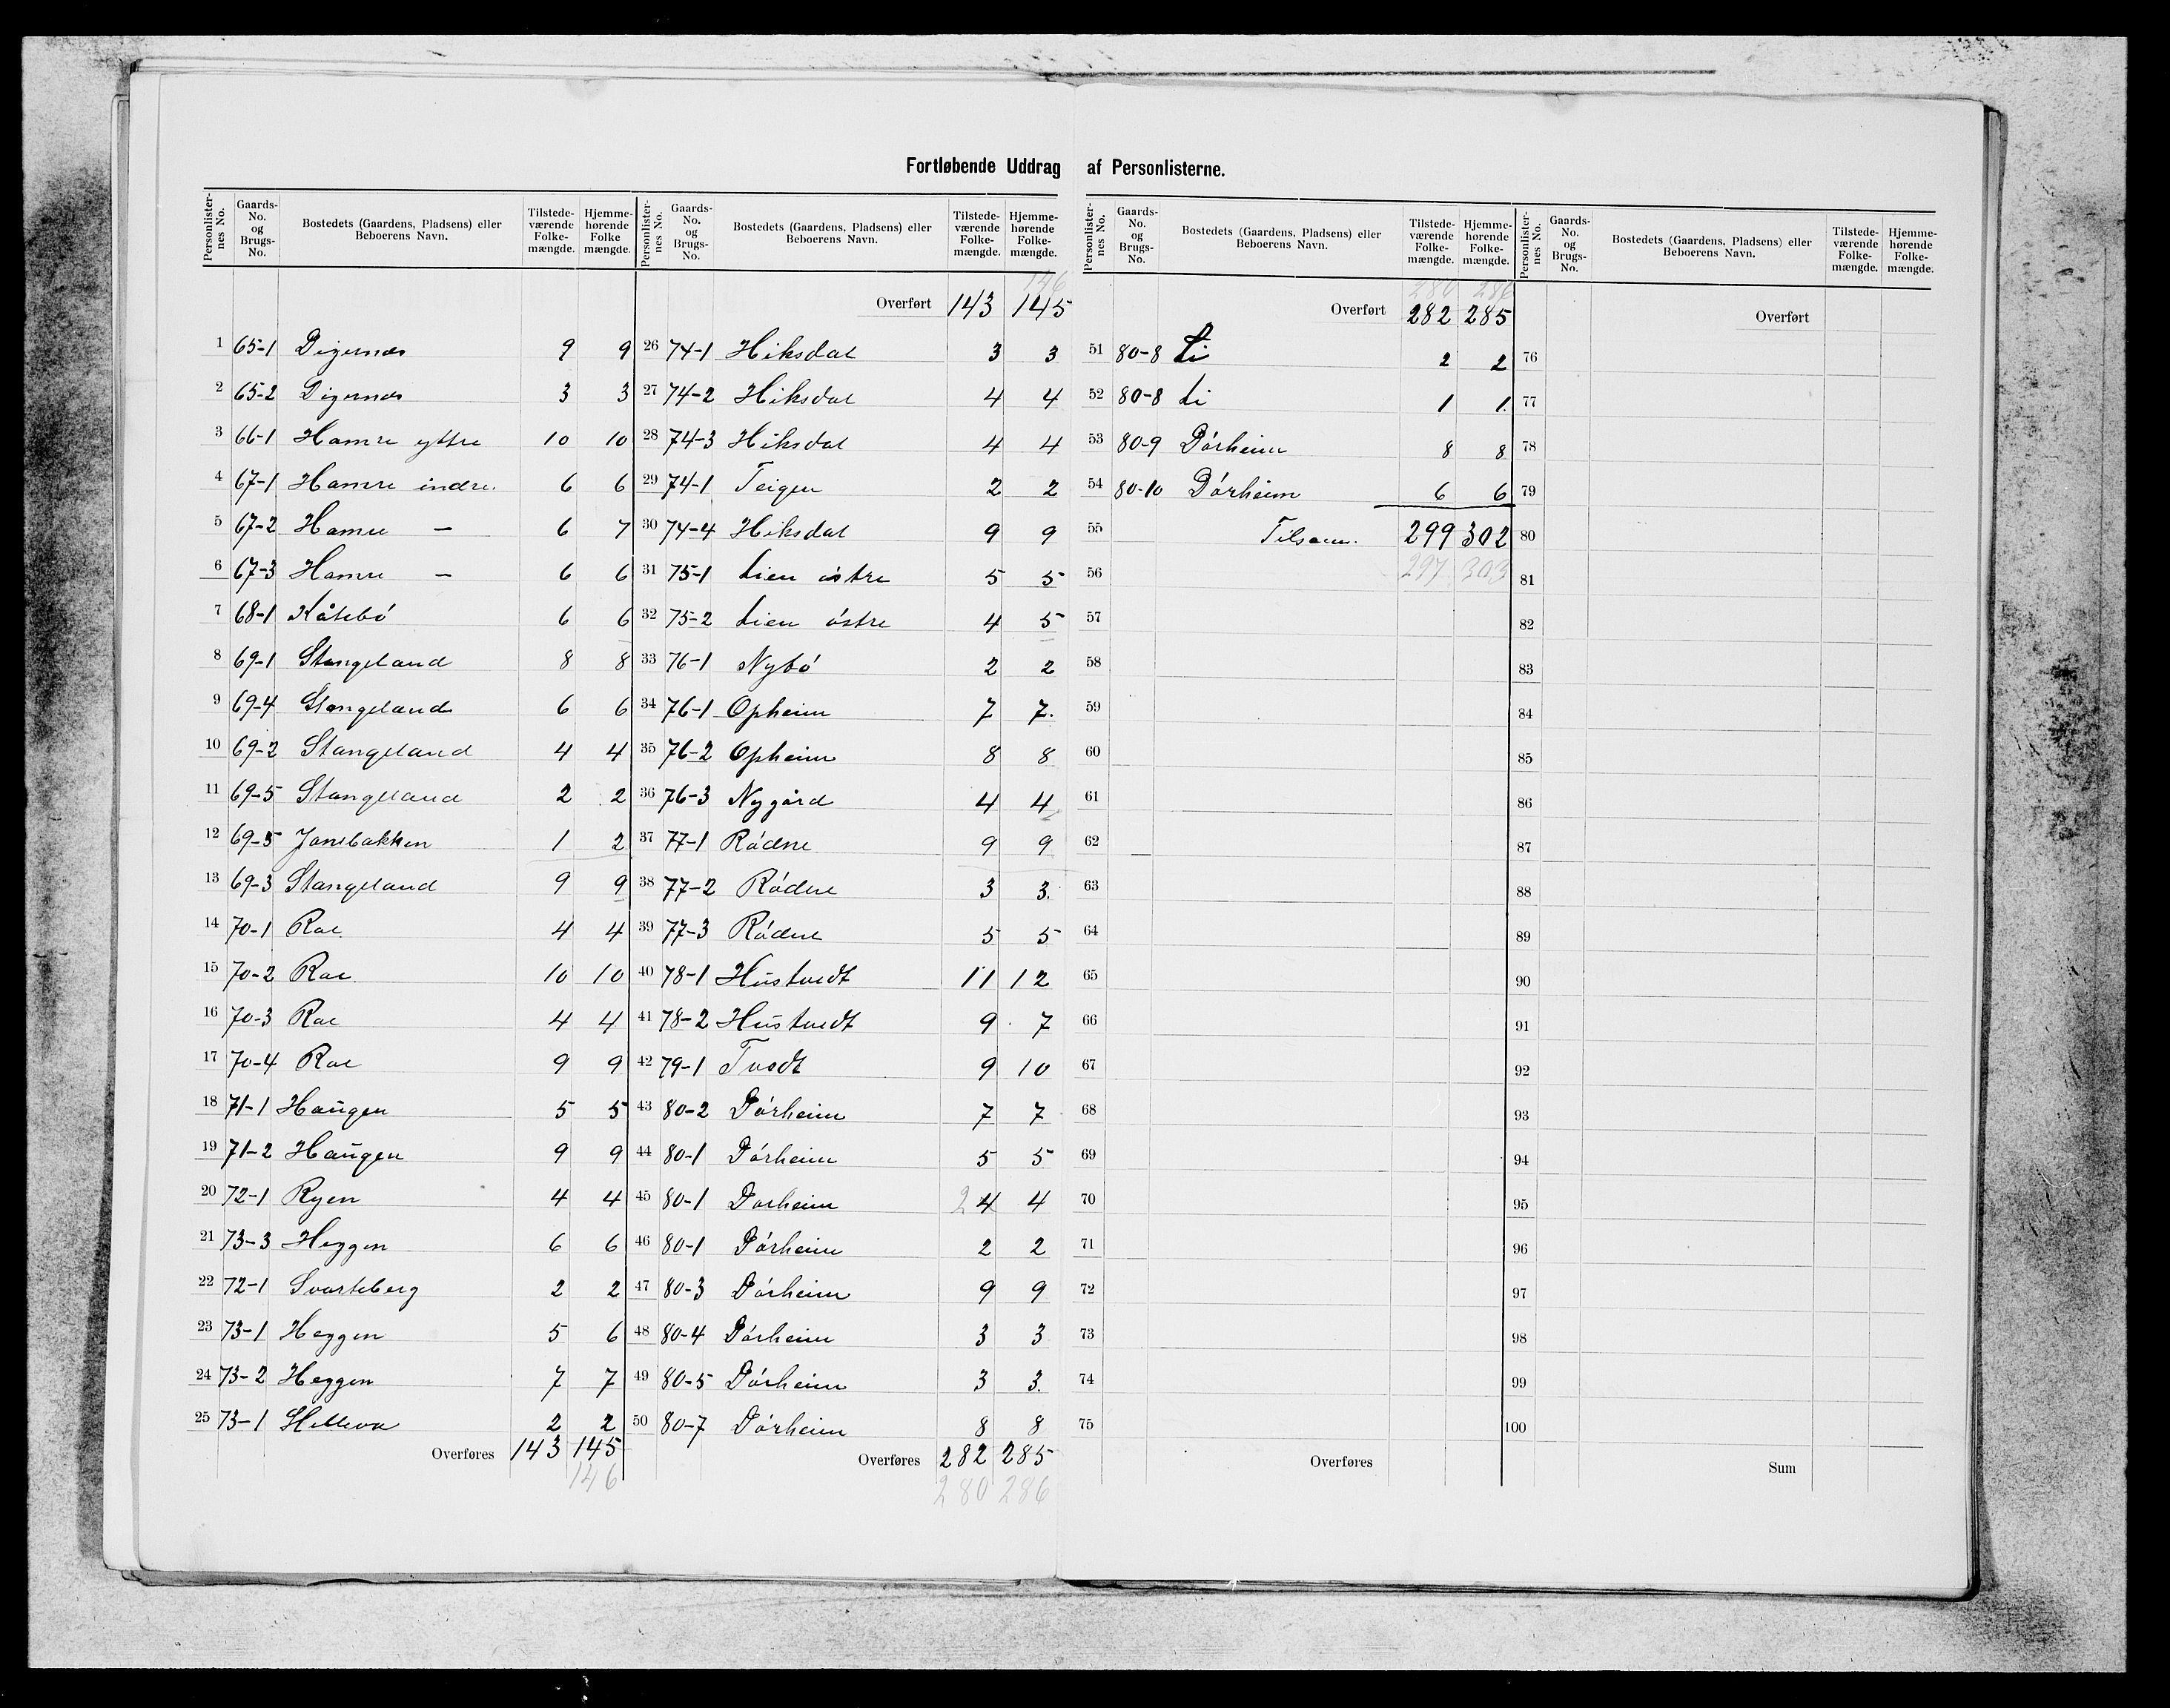 Fortløbende Uddrag af Personlisterne.
Personlister-nes No. | Gaards-No. og Brugs-No. | Bostedets (Gaardens, Pladsens) eller Beboerens Navn. | Tilstede-værende Folke-mængde. | Hjemme-hørende Folke mængde.
1 65-1 Digernæs 9 9
2 65-2 Digernæs 3 3
3 66-1 Hamre yttre 10 10
4 67-1 Hamre indre. 6 6
5 67-2 Hamre — 6 7
6 67-3 Hamre — 6 6
7 68-1 Kåtebö 6 6
8 69-1 Stangeland 8 8
9 69-4 Stangeland 6 6
10 69-2 Stangeland 4 4
11 69-5 Stangeland 2 2
12 69-5 Janebakken 1 2
13 69-3 Stangeland 9 9
14 70-1 Roe 4 4
15 70-2 Roe 10 10
16 70-3 Roe 4 4
17 70-4 Roe 9 9
18 71-1 Haugen 5 5
19 71-2 Haugen 9 9
20 72-1 Ryen 4 4
21 73-3 Heggen 6 6
22 72-1 Svarteberg 2 2
23 73-1 Heggen 5 6
24 73-2 Heggen 7 7
25 73-1 2 2
Overføres 143 145
146
Personlister-nes No. | Gaards-No. og Brugs-No. | Bostedets (Gaardens, Pladsens) eller Beboerens Navn. | Tilstede-værende Folke-mængde. | Hjemme-hørende Folke-mængde.
146
Overført 143 145
26 74-1 Hiksdal 3 3
27 74-2 Hiksdal 4 4
28 74-3 Hiksdal 4 4
29 74-1 Teigen 2 2
30 74-4 Hiksdal 9 9
31 75-1 Lien östre 5 5
32 75-2 Lien östre 4 5
33 76-1 Nybö 2 2
34 76-1 Opheim 7 7.
35 76-2 Opheim 8 8
36 76-3 Nygård 4 4
37 77-1 Rödne 9 9
38 77-2 Rödne 3 3.
39 77-3 Rödne 5 5
40 78-1 Hustvedt 11 12
41 78-2 Hustvedt 9 7
42 79-1 Tvedt 9 10
43 80-2 Dörheim 7 7
44 80-1 Dörheim 5 5
45 80-1 Dorheim 2 4 4
46 80-1 Dörheim 2 2
47 80-3 Dörheim 9 9
48 80-4 Dörheim 3 3
49 80-5 Dörheim 3 3.
50 80-7 Dörheim 8 8
Overføres 282 285
280 286
Personlister-nes No. | Gaards-No. og Brugs-No. | Bostedets (Gaardens, Pladsens) eller Beboerens Navn. | Tilstede-værende Folke-mængde. | Hjemme-hørende Folke-mængde.
280 286
Overført 282 285
51 80-8 Li 2 2
52 80-8 Li 1 1.
53 80-9 Dörheim 8 8
54 80-10 Dörheim 6 6
55 Tilsam. 299 302
56 297 303
57
58
59
60
61
62
63
64
65
66
67
68
69
70
71
72
73
74
75
Overføres
Personlister-nes No. | Gaards-No. og Brugs-No. | Bostedets (Gaardens, Pladsens) eller Beboerens Navn. | Tilstede-værende Folke-mængde. | Hjemme-hørende Folke-mængde.
Overført
76
77
78
79
80
81
82
83
84
85
86
87
88
89
90
91
92
93
94
95
96
97
98
99
100
Sum